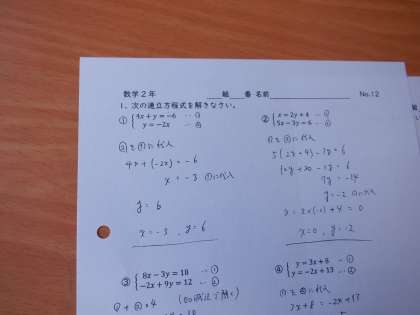 数学2年
組 番 名前
No.12
1、次の連立方程式を解きなさい。
① 4x+y=-6 …①
y=-2x …②
②を①に代入
4x+(-2x)=-6
x=-3 ①に代入
y=6
x=-3, y=6
② x=2y+4 …①
5x-3y=6 …②
①を②に代入
5(2y+4)-3y=6
10y+20-3y=6
7y=-14
y=-2 ①に代入
x=2×(-2)+4=0
x=0, y=-2
③ 8x-3y=18 …①
-2x+9y=12 …②
①+②×4 (加減法で解く)
④ y=3x+8 …①
y=-2x+13 …②
①を②に代入
3x+8=-2x+13